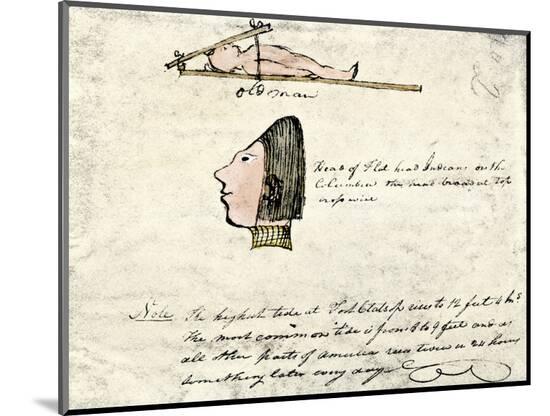 old man
Head of Flat head Indians on the
Columbia this head broad at top
crosswise
Note The highest tide at Fort Clatsop rises to 12 feet 4 Ins
The most common tide is from 8 to 9 feet and as
all other parts of america rises twice in 24 hours
something later every day